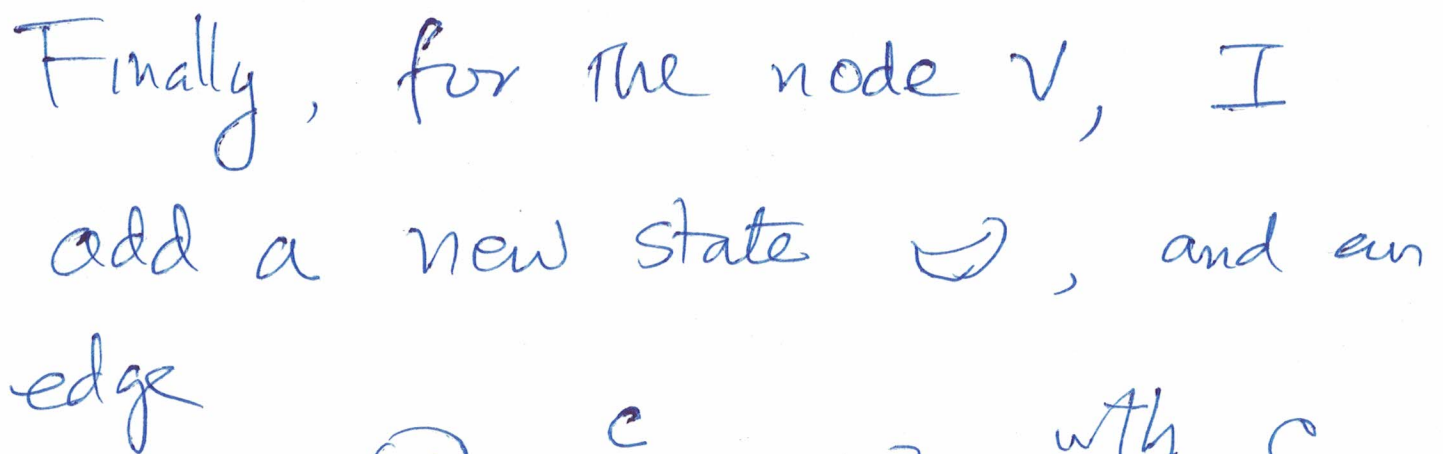 Finally, for the node V, I
add a new state , and an
edge
c with